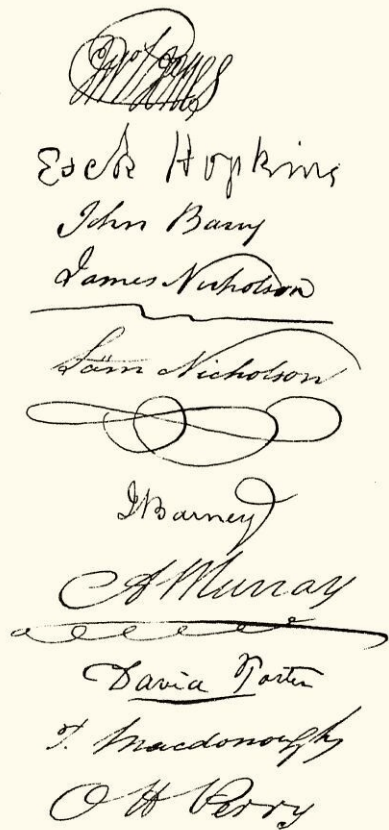 Jno P Jones
Esek Hopkins
John Barry
James Nicholson
Sam Nicholson
J Barney
A Murray
David Porter
T. Macdonough
O H Perry